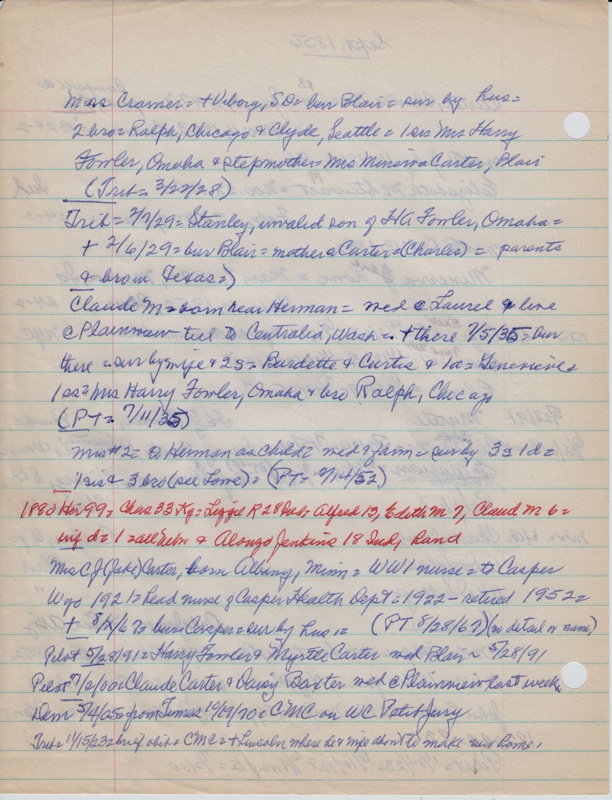 Mrs Cramer = + Viborg, SD = bur Blair = sur by hus =
2 bro = Ralph, Chicago & Clyde, Seattle = 1 sis Mrs Harry
Fowler, Omaha & stepmother = Mrs Minerva Carter, Blair
(Trib = 3/27/28)
Trib = 2/7/29 = Stanley, invalid son of HA Fowler, Omaha =
+ 2/6/29 = bur Blair = mother a Carter = (Charles) = parents
& bro in Texas =)
Claude M = born near Herman = med @ Laurel & line
@ Plainview til to Centralia, Wash = + there 7/5/35 = bur
there = sur by wife & 2 S = Burdette & Curtis & 1 d = Genevieve =
1 sis = Mrs Harry Fowler, Omaha & bro Ralph, Chicago
(PT = 7/11/35)
Mrs #2 = Herman as child = med & farm = sur by 3 s 1 d =
1 sis & 3 bro (see Lowe) = (PT = 9/14/52)
1880 Her 99 = Chas 33 Ky = Lizzie R 28 Ind, Alfred 13, Edith M 7, Claud M 6 =
inf d = 1 = all Nebr & Alonzo Jenkins 18 Ind, Rand
Mrs CJ (Jake) Carter, born Albany, Minn = WW1 nurse = to Casper
Wyo 1921 = head nurse of Casper Health Dept = 1922 - retired 1952 =
+ 8/ /67 = bur Casper = sur by hus = (PT 8/28/67) (no detail or name)
Pilot 5/28/91 = Harry Fowler & Myrtle Carter med Blair = 5/28/91
Pilot 7/2/00 = Claude Carter & Daisy Baxter med @ Plainview last week
Dem 5/4/05 = from Times 10/19/70 = CMC on WC Petit Jury
Trib = 11/15/23 = brief obit = CMC = + Lincoln where he & wife about to make new home.